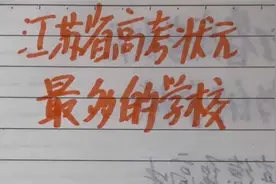 江苏省高考状元
最多的学校